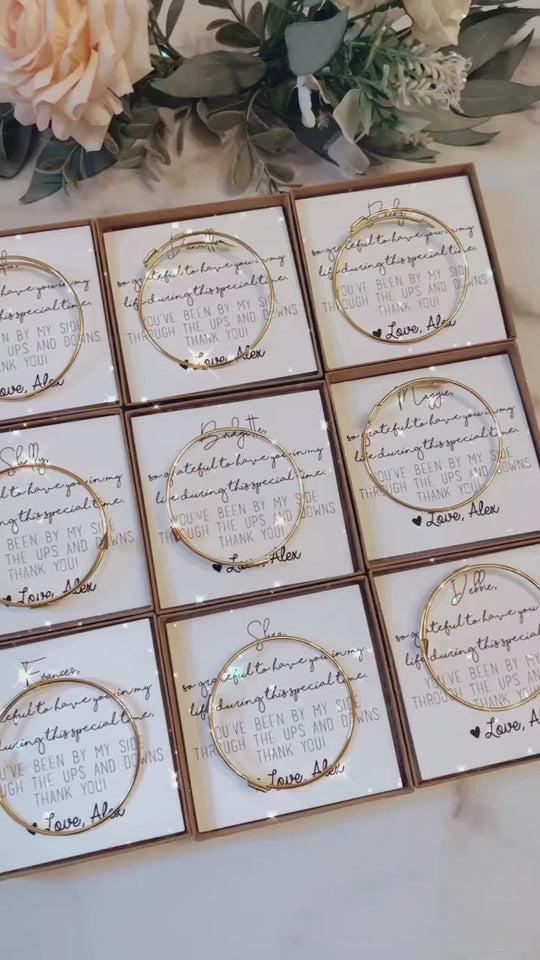 have you in my
this special time.
BY MY SIDE
UPS AND DOWNS
YOU!
Alex
Danielle,
so grateful to have you in my
life during this special time.
YOU'VE BEEN BY MY SIDE
THROUGH THE UPS AND DOWNS
THANK YOU!
Love, Alex
so grateful to have you in my
life during this special time.
YOU'VE BEEN BY MY SIDE
THROUGH THE UPS AND DOWNS
THANK YOU!
Love, Alex
Shelly,
to have you in my
this special time.
BEEN BY MY SIDE
THE UPS AND DOWNS
THANK YOU!
Love, Alex
Bridgette,
so grateful to have you in my
life during this special time.
YOU'VE BEEN BY MY SIDE
THROUGH THE UPS AND DOWNS
THANK YOU!
Love, Alex
Maggie,
so grateful to have you in my
life during this special time.
YOU'VE BEEN BY MY SIDE
THROUGH THE UPS AND DOWNS
THANK YOU!
Love, Alex
Frances,
to have you in my
during this special time.
BEEN BY MY SIDE
THE UPS AND DOWNS
THANK YOU!
Love, Alex
Shea,
so grateful to have you in my
life during this special time.
YOU'VE BEEN BY MY SIDE
THROUGH THE UPS AND DOWNS
THANK YOU!
Love, Alex
Debbie,
so grateful to have you
life during this special
YOU'VE BEEN BY MY
THROUGH THE UPS AND
THANK YOU!
Love, Alex